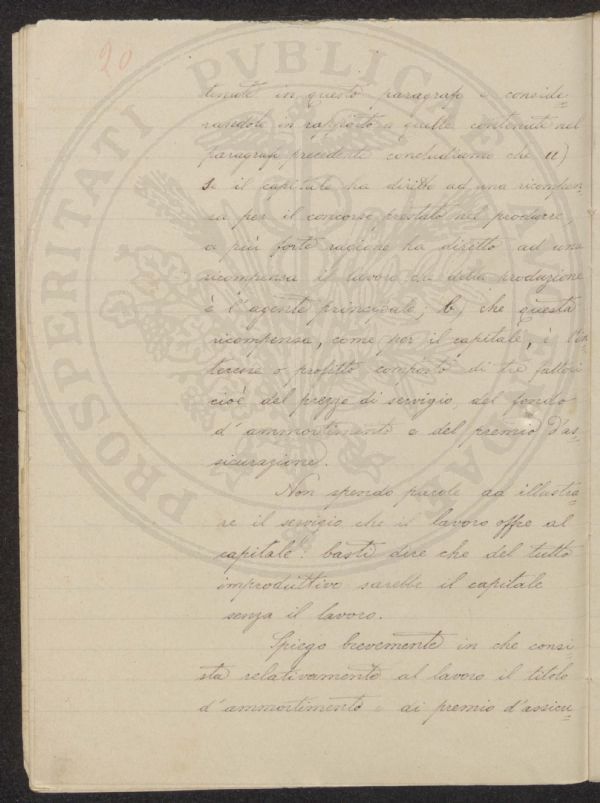 20
tenute in questo paragrafo e conside-
randole in rapporto a quelle contenute nel
paragrafo precedente concludiamo che a)
Se il capitale ha diritto ad una ricompen-
sa per il concorso prestato nel produrre,
a più forte ragione ha diretto ad una
ricompensa il lavoro che della produzione
è l'agente principale; b) che questa
ricompensa, come per il capitale, è l'in-
teresse o profitto composto di tre fattori
cioè del prezzo di servigio, del fondo
d'ammortimento e del premio d'as-
sicurazione.
Non spendo parole ad illustra-
re il servigio che il lavoro offre al
capitale: basti dire che del tutto
improduttivo sarebbe il capitale
senza il lavoro.
Spiego brevemente in che consi-
sta relativamente al lavoro il titolo
d'ammortimento e di premio d'assicu-
PROSPERITATI PVBLICAE